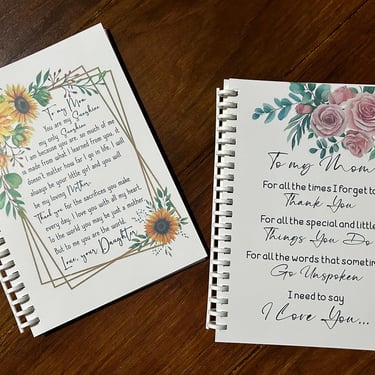 To my Mom
You are my Sunshine
my only Sunshine
I am because you are, so much of me
is made from what I learned from you, it
doesn't matter how far I go in life, I will
always be your little girl and you will
be my loving Mother.
Thank you for the sacrifices you make
every day, I love you with all my heart.
to the world you may be just a mother,
But to me you are the world.
Love, your Daughter
To my Mom
For all the times I forget to
Thank You
For all the special and little
Things You Do
For all the words that sometim
Go Unspoken
I need to say
I Love You...